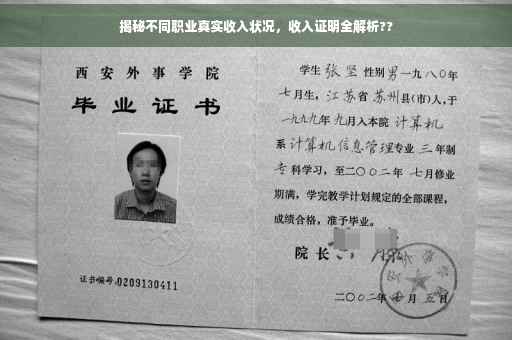 揭秘不同职业真实收入状况，收入证明全解析??
西安外事学院
毕业证书
证书编号:0209130411
学生 张坚 性别 男 一九八〇年
七月生，江苏省 苏州县(市)人，于
一九九九年 九月入本院 计算机
系 计算机信息管理专业 三 年制
专科学习，至二〇〇二年 七月修业
期满，学完教学计划规定的全部课程，
成绩合格，准予毕业。
院长
二〇〇二年 月 五日